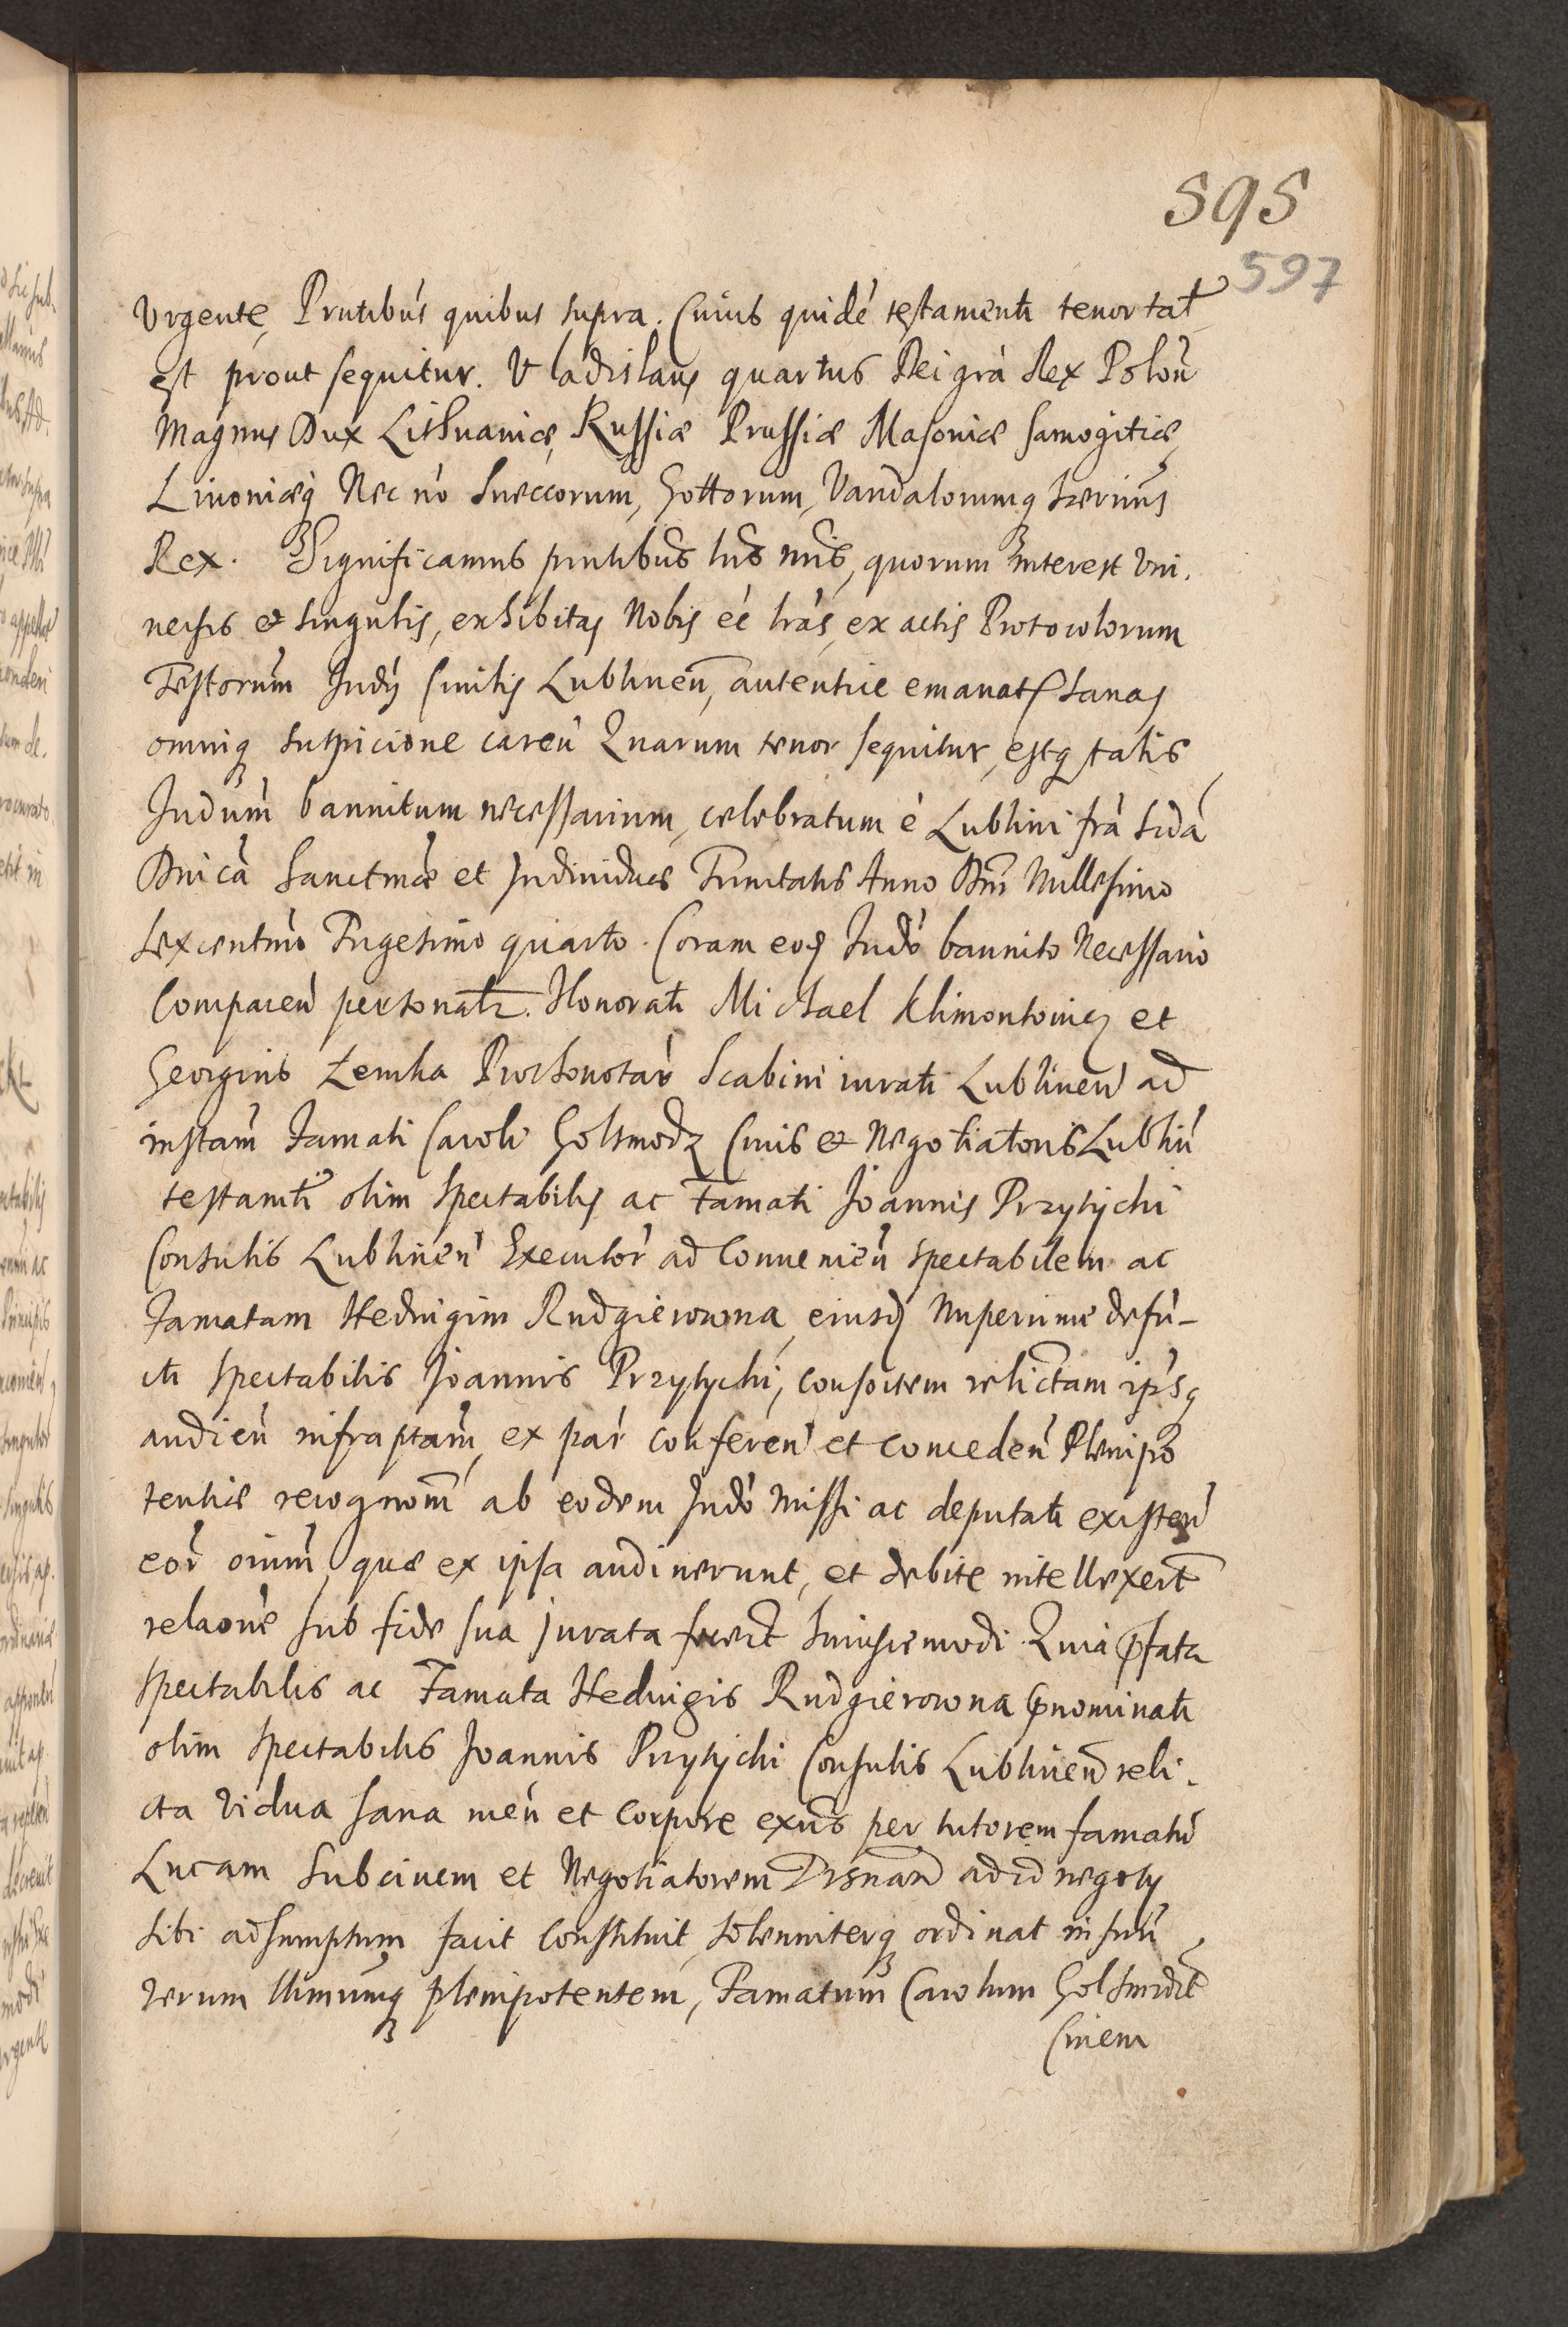 595
597
Vrgente, Pntibus quibus supra. Cuius quidē testamenti tenor tał
est prout sequitur. Vladislaus quartus Dei grà Rex Poloń
Magnus Dux Lithuaniæ, Russiæ Prussiæ Masoviæ Samogitiæ,
Livoniæq Nec nō Sueccorum, Gottorum, Vandalorumq hærius
Rex. Significamus pntibus lris nris, quorum interest Vni.
versis et singulis, exhibitas Nobis eē lras, ex actis Protocolorum
Testorum Judy Civilis Lublineń, autentice emanat, sanas
omniq suspicione careń Quarum tenor sequitur, estq talis
Judum bannitum necessarium, celebratum ē Lublini fra Sidā
Dnicā Sanctmæ et Individuæ Trinitatis Anno Dni Millesimo
Sexcentmo Trigesimo quarto. Coram eoɋ Judo bannito Necessario
Compareń personalr. Honorati Michael Klimontowicz et
Georgius Lemka Prothonotar Scabini iurati Lublineń ad
instam Famati Caroli Goltsmodz Civis et Negotiatoris Lubliń
testamti olim Spectabilis ac Famati Joannis Przytycki
Consulis Lublineń Executor ad Convenień Spectabilem ac
Famatam Hedvigim Rudgierowna, eiusɋ Nuperrime defu-
cti Spectabilis Joannis Przytycki, consortem relictam ipsq
audień infraptam, ex par confereń et concedeń Plenipo
tentiæ recognom ab eodem Judo Missi ac deputati existeń
eor oium, quæ ex ipsa audiverunt, et debite intellexert
relaone sub fide sua jurata fecert huiuscemodi. Quia pfata
Spectabilis ac Famata Hedvigis Rudgierowna pnominati
olim Spectabilis Joannis Przytycki Consulis Lublineń reli.
cta Vidua sana meń et corpore exns per tutorem famatū
Lucam Subcivem et Negotiatorem ad id negoty
sibi adsumptum facit Constituit, Solenniterq ordinat in suū
Verum llimumq plenipotentem, Famatum Carolum Goltsmidt
Civem